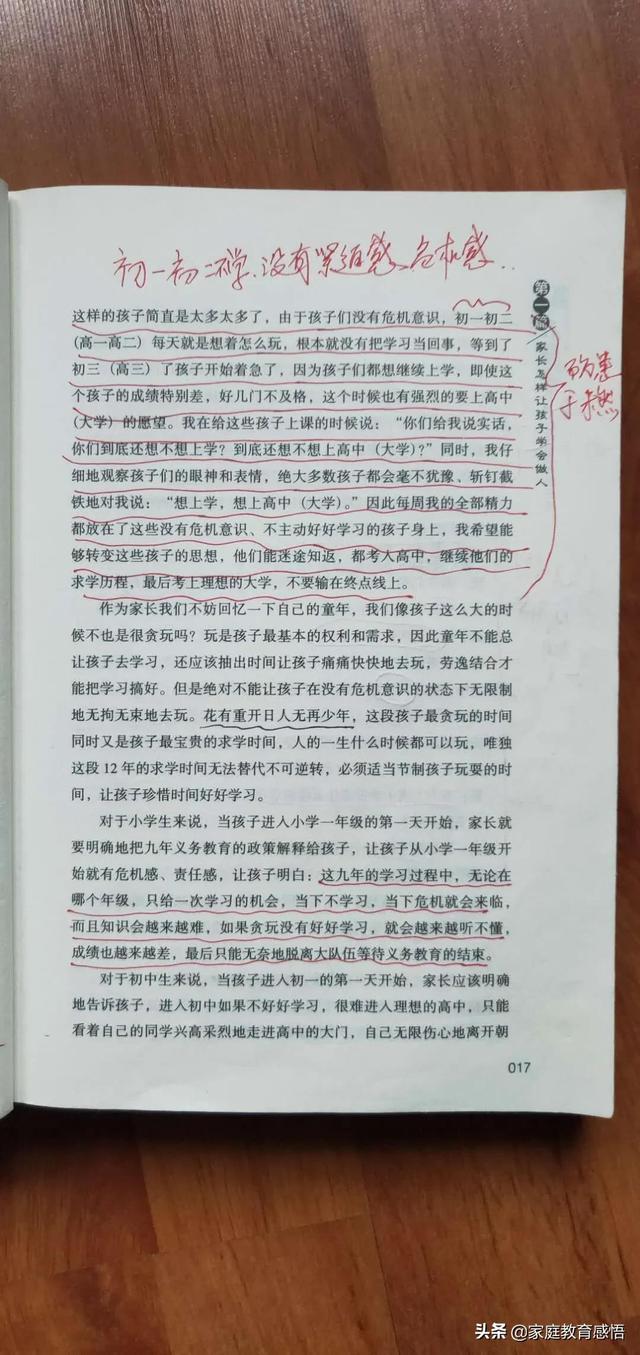 初一初二不学,没有紧迫感、危机感..
这样的孩子简直是太多太多了,由于孩子们没有危机意识,初一初二
(高一高二)每天就是想着怎么玩,根本就没有把学习当回事,等到了
初三(高三)了孩子开始着急了,因为孩子们都想继续上学,即使这
个孩子的成绩特别差,好几门不及格,这个时候也有强烈的要上高中
(大学)的愿望。我在给这些孩子上课的时候说:“你们给我说实话,
你们到底还想不想上学?到底还想不想上高中(大学)?”同时,我仔
细地观察孩子们的眼神和表情,绝大多数孩子都会毫不犹豫、斩钉截
铁地对我说:“想上学,想上高中(大学)。”因此每周我的全部精力
都放在了这些没有危机意识、不主动好好学习的孩子身上,我希望能
够转变这些孩子的思想,他们能迷途知返,都考入高中,继续他们的
求学历程,最后考上理想的大学,不要输在终点线上。
作为家长我们不妨回忆一下自己的童年,我们像孩子这么大的时
候不也是很贪玩吗?玩是孩子最基本的权利和需求,因此童年不能总
让孩子去学习,还应该抽出时间让孩子痛痛快快地去玩,劳逸结合才
能把学习搞好。但是绝对不能让孩子在没有危机意识的状态下无限制
地无拘无束地去玩。花有重开日人无再少年,这段孩子最贪玩的时间
同时又是孩子最宝贵的求学时间,人的一生什么时候都可以玩,唯独
这段 12 年的求学时间无法替代不可逆转,必须适当节制孩子玩耍的时
间,让孩子珍惜时间好好学习。
对于小学生来说,当孩子进入小学一年级的第一天开始,家长就
要明确地把九年义务教育的政策解释给孩子,让孩子从小学一年级开
始就有危机感、责任感,让孩子明白:这九年的学习过程中,无论在
哪个年级,只给一次学习的机会,当下不学习,当下危机就会来临,
而且知识会越来越难,如果贪玩没有好好学习,就会越来越听不懂,
成绩也越来越差,最后只能无奈地脱离大队伍等待义务教育的结束。
对于初中生来说,当孩子进入初一的第一天开始,家长应该明确
地告诉孩子,进入初中如果不好好学习,很难进入理想的高中,只能
看着自己的同学兴高采烈地走进高中的大门,自己无限伤心地离开朝
第一篇
家长怎样让孩子学会做人
于未然
017
头条 @家庭教育感悟